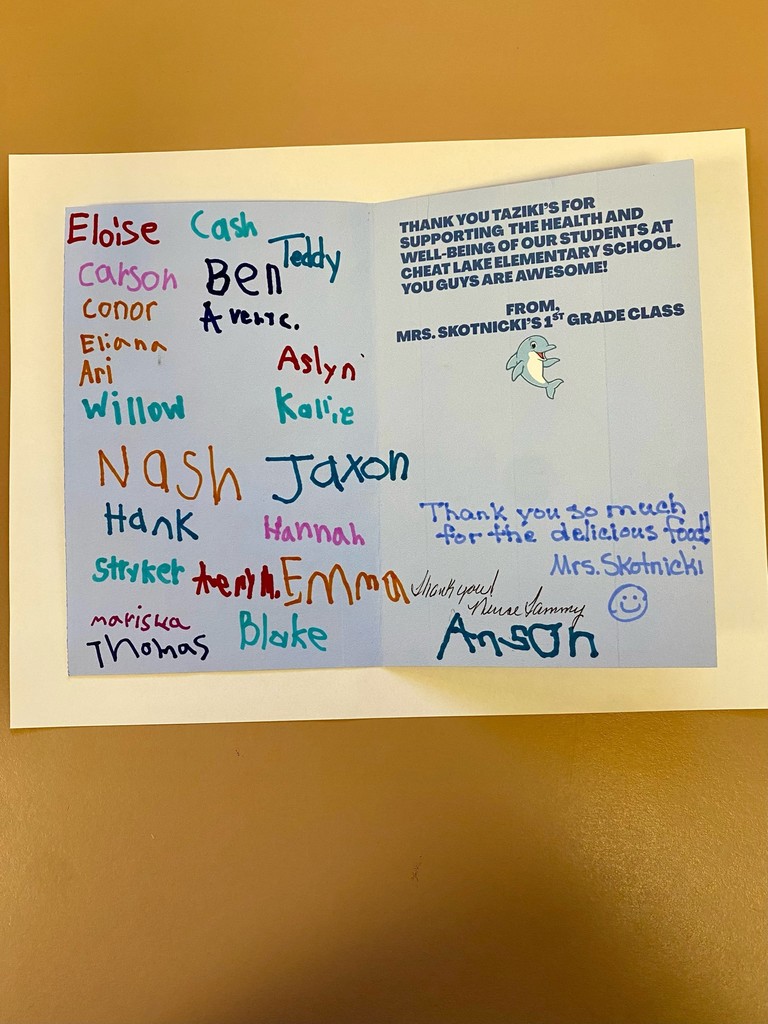 Eloise Cash
Teddy
Carson Ben
Conor Avery C.
Eliana
Aslyn
Ari
Willow Kallie
Nash Jaxon
Hank Hannah
Stryker Avery M. Emma
mariska Blake
Thomas
THANK YOU TAZIKI'S FOR
SUPPORTING THE HEALTH AND
WELL-BEING OF OUR STUDENTS AT
CHEAT LAKE ELEMENTARY SCHOOL.
YOU GUYS ARE AWESOME!
FROM,
MRS. SKOTNICKI'S 1ST GRADE CLASS
Thank you so much
for the delicious food!
Mrs. Skotnicki
Thank you!
Nurse Tammy
Anson